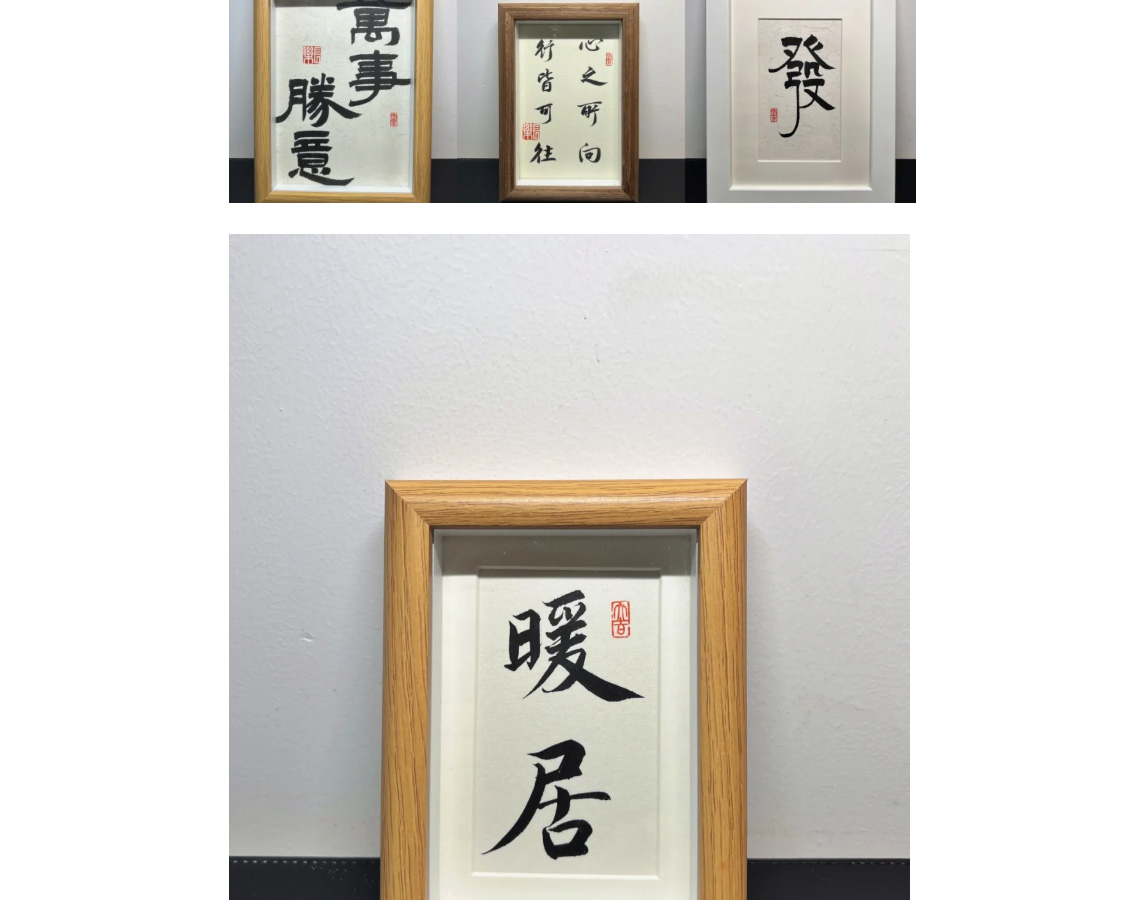 萬事
勝意
心之所向
行皆可往
發
大吉
暖居